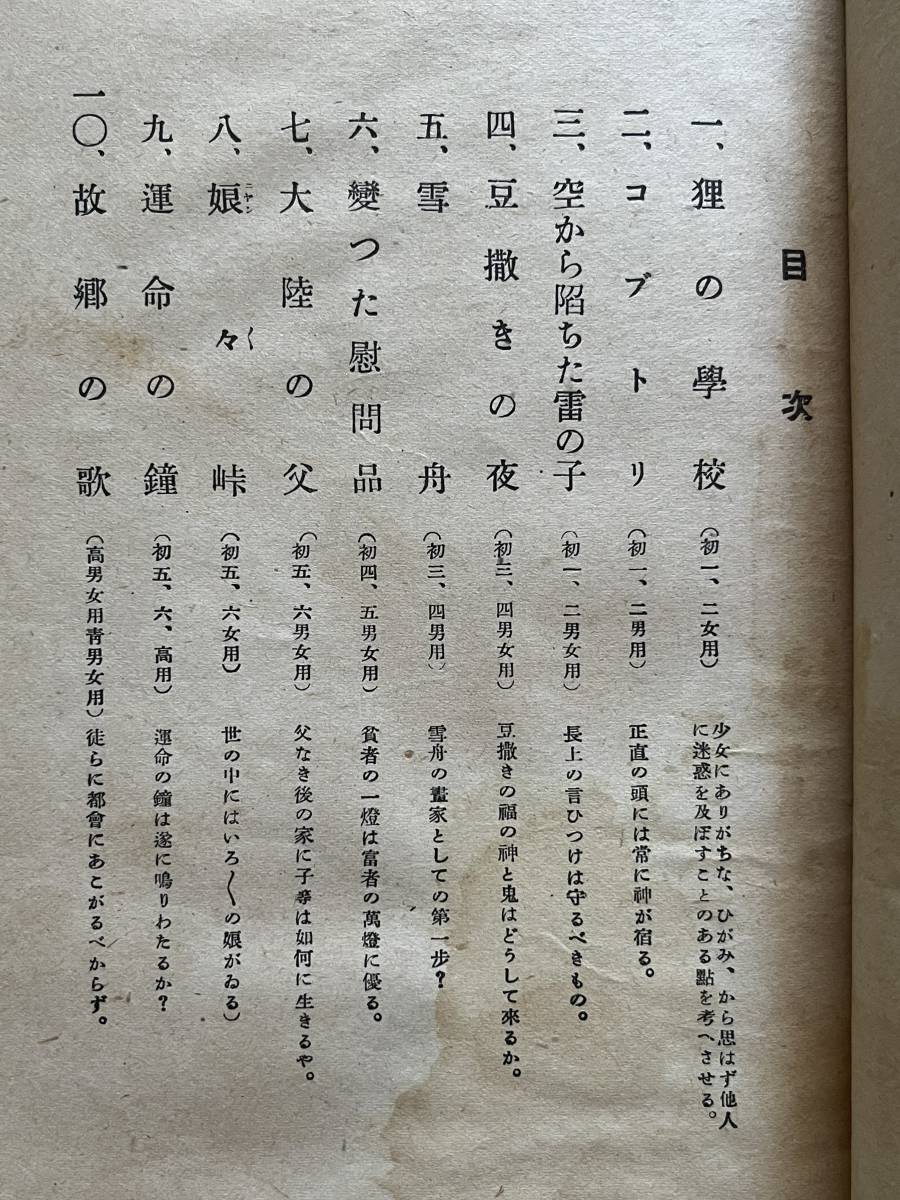 目次
一、狸の學校（初一、二女用）少女にありがちな、ひがみ、から思はず他人
に迷惑を及ぼすことのある點を考へさせる。
二、コブトリ（初一、二男用）正直の頭には常に神が宿る。
三、空から陷ちた雷の子（初一、二男女用）長上の言ひつけは守るべきもの。
四、豆撒きの夜（初三、四男女用）豆撒きの福の神と鬼はどうして來るか。
五、雪舟（初三、四男用）雪舟の畫家としての第一步？
六、變つた慰問品（初四、五男女用）貧者の一燈は富者の萬燈に優る。
七、大陸の父（初五、六男女用）父なき後の家に子等は如何に生きるや。
八、娘々峠（初五、六女用）世の中にはいろ〳〵の娘がゐる）
ニヤン〳〵
九、運命の鐘（初五、六、高用）運命の鐘は遂に鳴りわたるか？
一〇、故鄕の歌（高男女用靑男女用）徒らに都會にあこがるべからず。